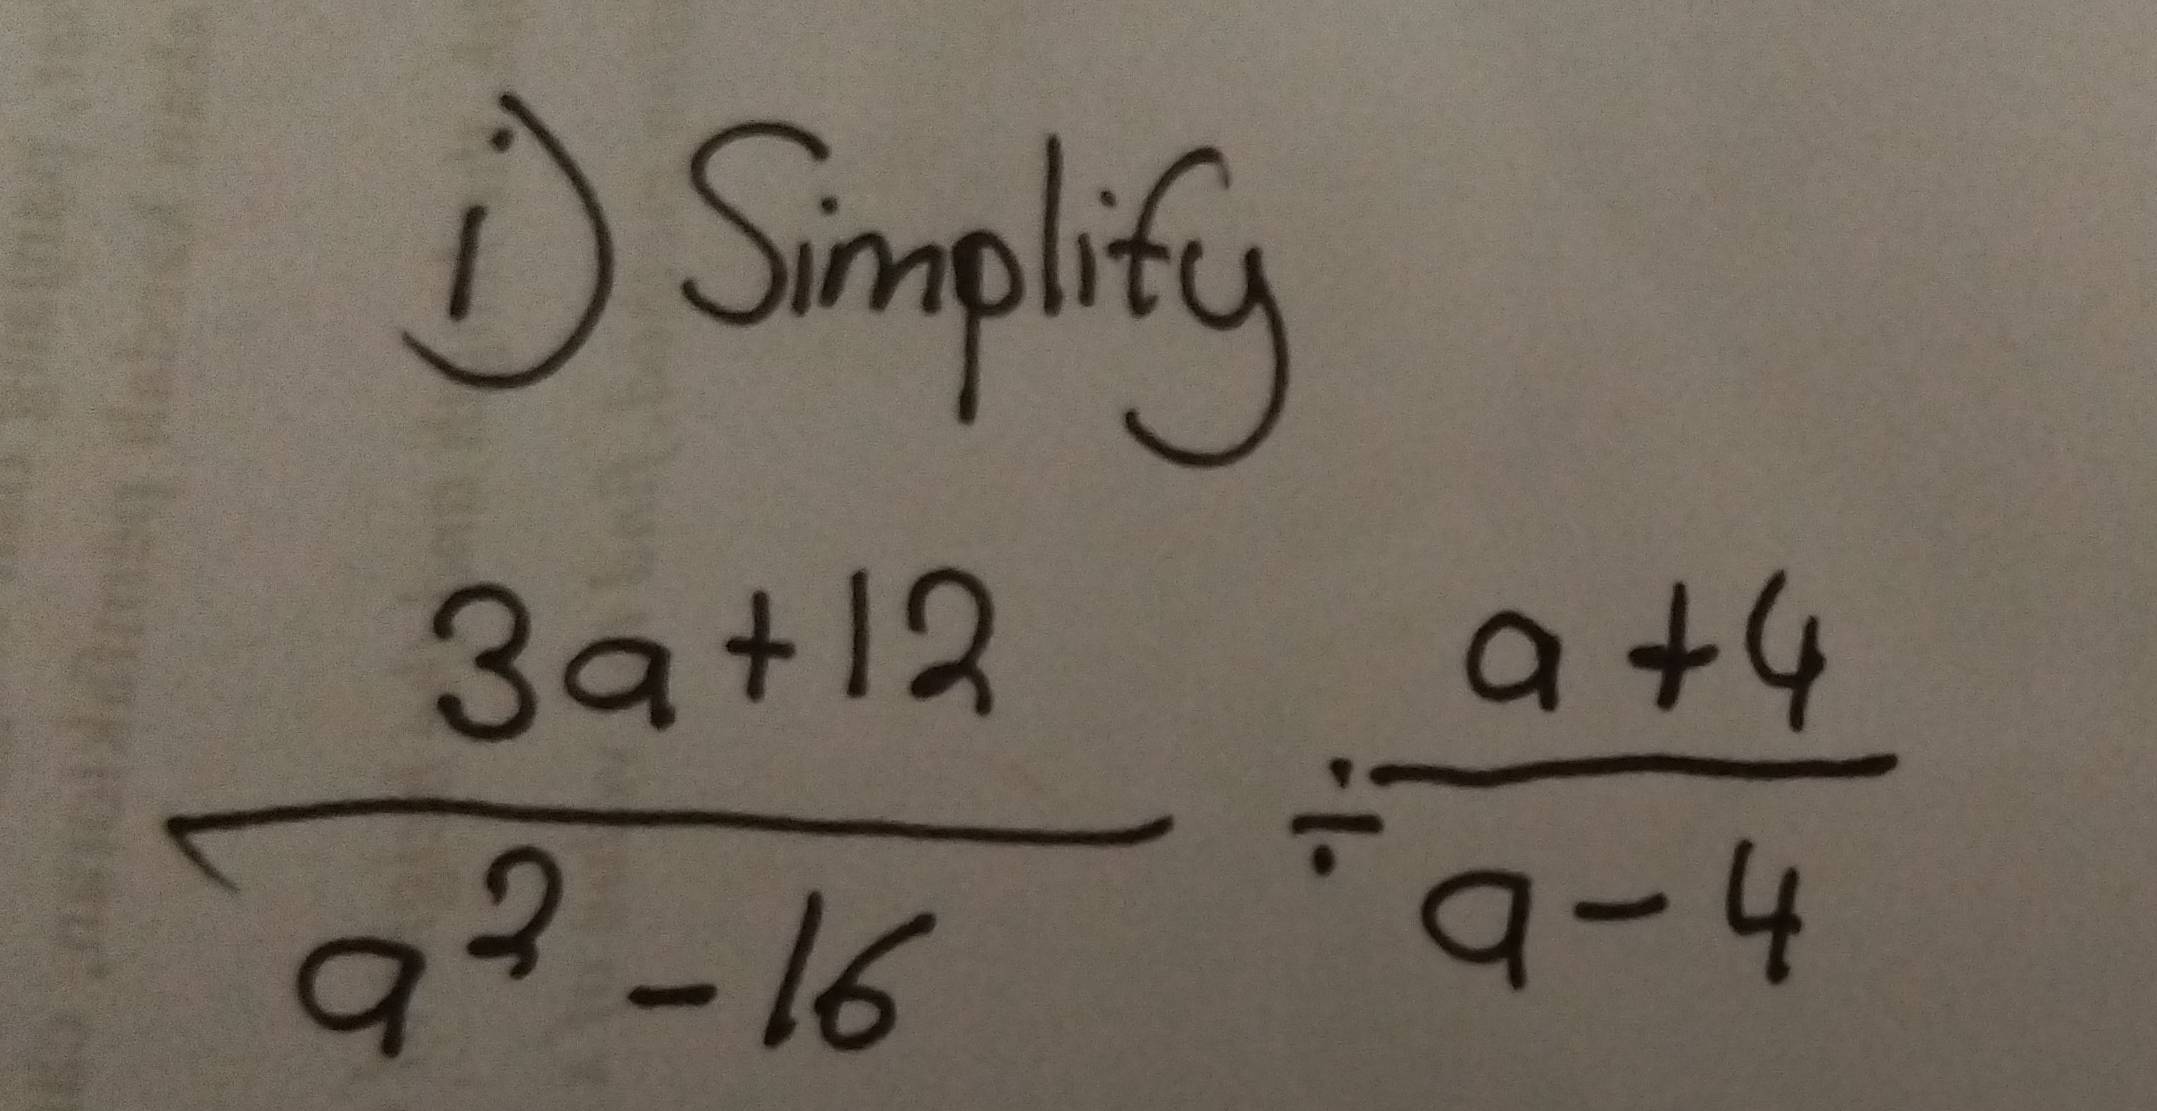 i) Simplify
3a+12
a² - 16
÷
a + 4
a - 4